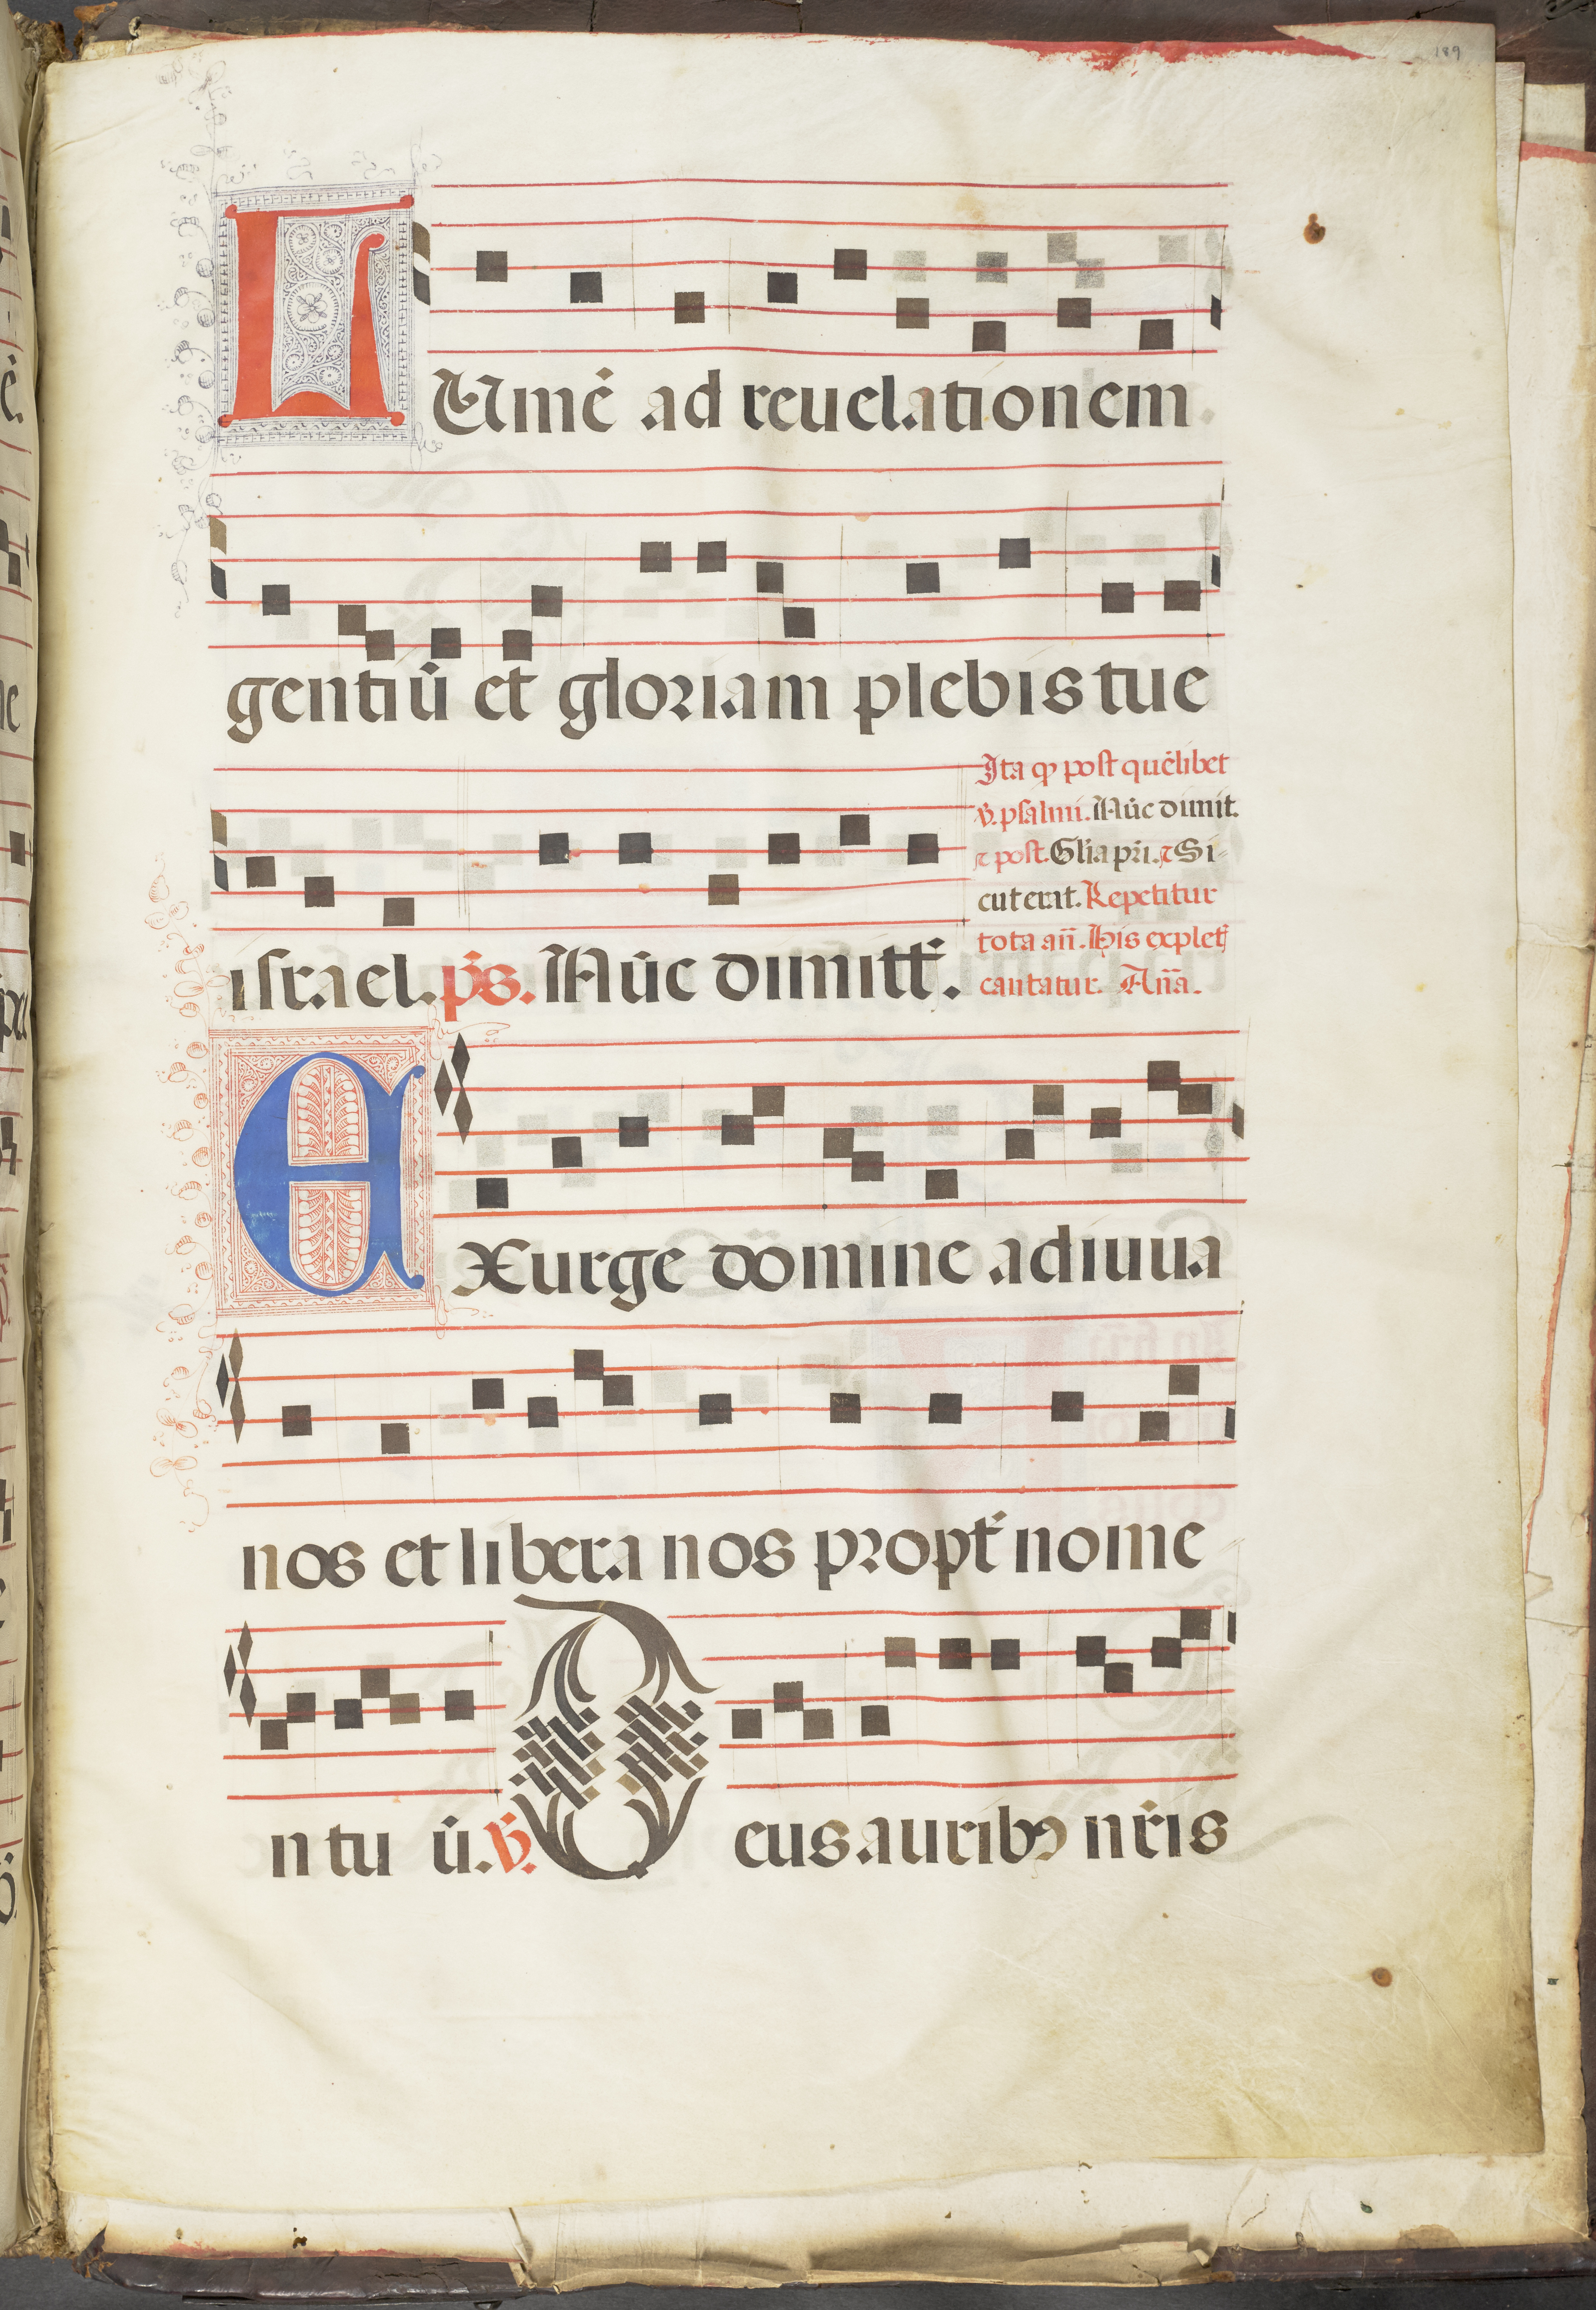 189
LUmē ad reuelationem
gentiū et gloriam plebis tue
Ita qp post quēlibet
v̄. psalmi. Nūc dimit.
⁊ post. Gl̄ia pr̄i. ⁊ Si-
cut erat. Repetitur
tota an̄. His explet̄
cantatur. An̄a.
israel. ps̄. Nūc dimitt̄.
EXurge domine adiuua
nos et libera nos propt̄ nome
n tu ū. v̄. Deus auribꝰ nr̄is